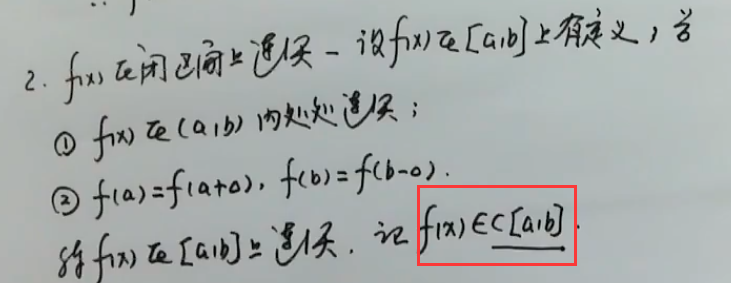 2. f(x)在闭区间上连续 - 设f(x)在[a,b]上有定义, 若
① f(x)在(a,b)内处处连续;
② f(a)=f(a+0), f(b)=f(b-0).
称f(x)在[a,b]上连续. 记 f(x)∈C[a,b].